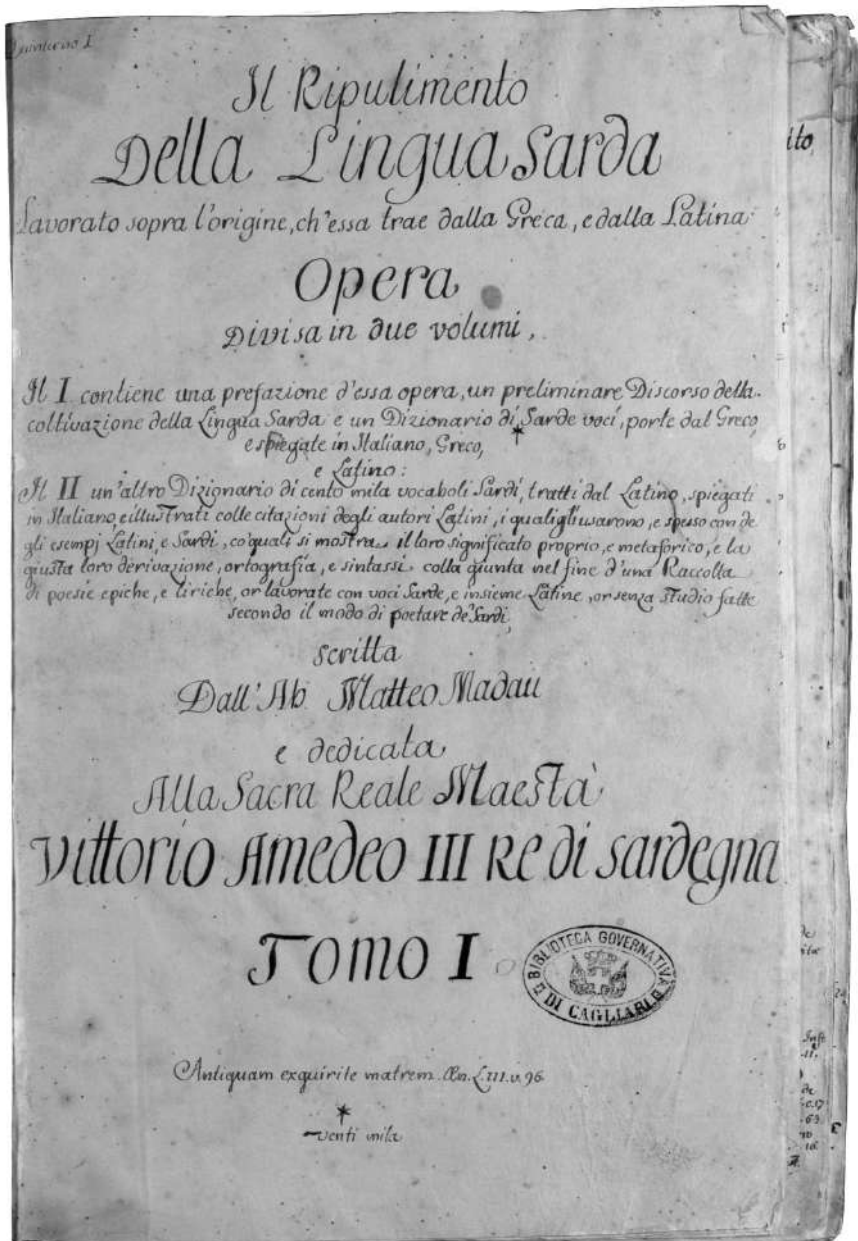 Quinterno I
Il Ripulimento
Della Lingua Sarda
Lavorato sopra l'origine, ch'essa trae dalla Greca, e dalla Latina
Opera
Divisa in due volumi,
Il I contiene una prefazione d'essa opera, un preliminare Discorso della
coltivazione della Lingua Sarda e un Dizionario di * Sarde voci, porte dal Greco,
e spiegate in Italiano, Greco,
e Latino:
Il II un'altro Dizionario di cento mila vocaboli Sardi, tratti dal Latino, spiegati
in Italiano, e illustrati colle citazioni degli autori Latini, i quali gli usarono, e spesso con de
gli esempj Latini, e Sardi, co' quali si mostra il loro significato proprio, e metaforico, e la
giusta loro derivazione, ortografia, e sintassi colla giunta nel fine d'una Raccolta
di poesie epiche, e liriche, or lavorate con voci Sarde, e insieme Latine, or senza studio fatte
secondo il modo di poetare de' Sardi,
scritta
Dall' Ab. Matteo Madau
e dedicata
Alla Sacra Reale Maestà
Vittorio Amedeo III Re di Sardegna
Tomo I
BIBLIOTECA GOVERNATIVA
DI CAGLIARI
Antiquam exquirite matrem. Æn. L. III. v. 96
*
venti mila
ito,